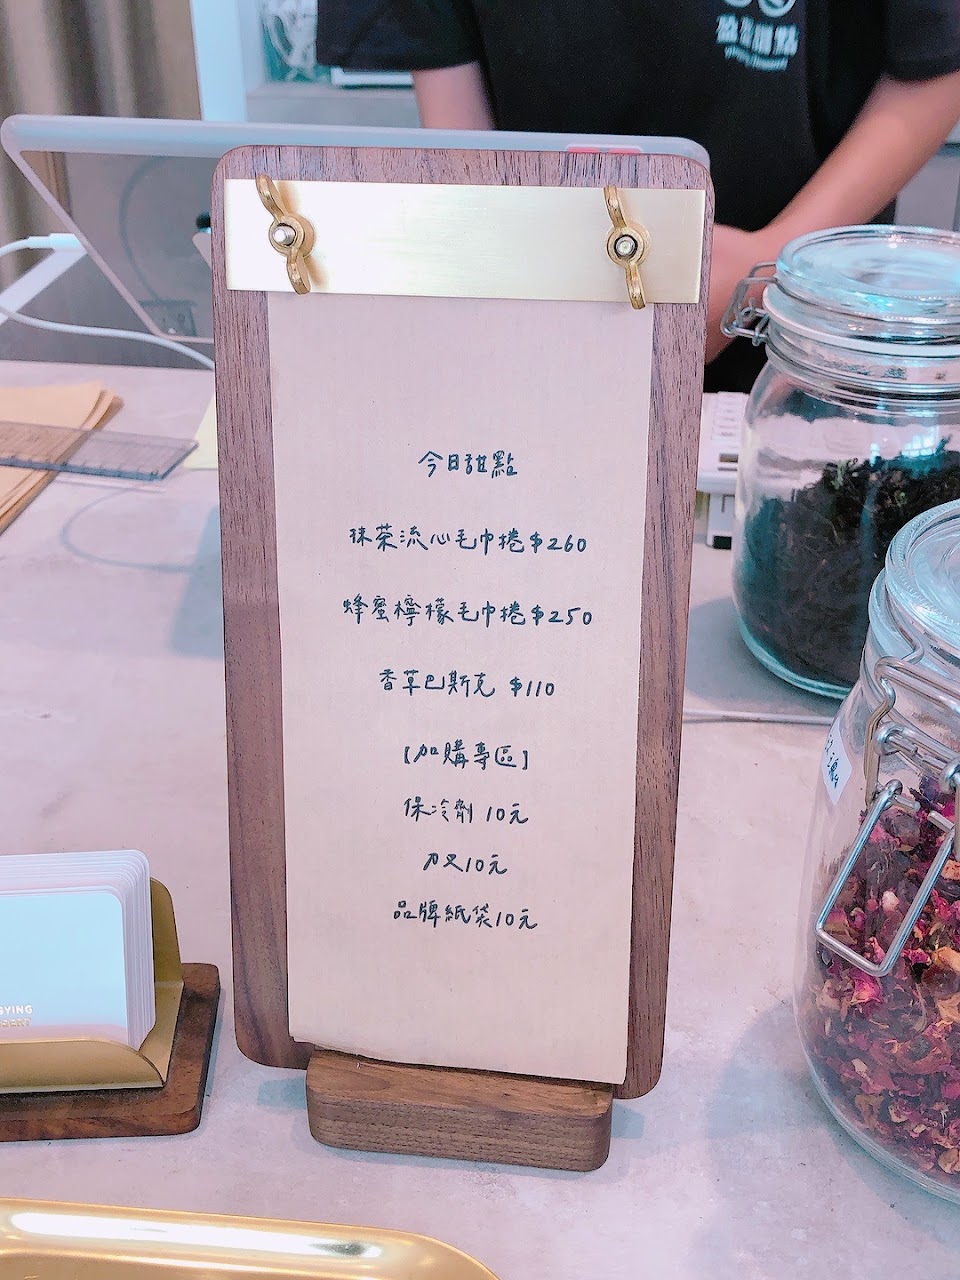 今日甜點
抹茶流心毛巾捲$260
蜂蜜檸檬毛巾捲$250
香草巴斯克 $110
【加購專區】
保冷劑 10元
刀叉10元
品牌紙袋10元